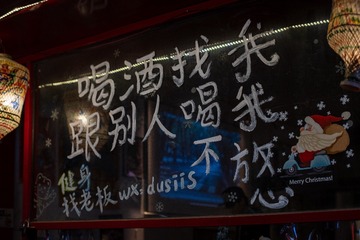 喝酒找我
跟别人喝我
不放心
健身
找老板 wx.dusiis
Merry Christmas!